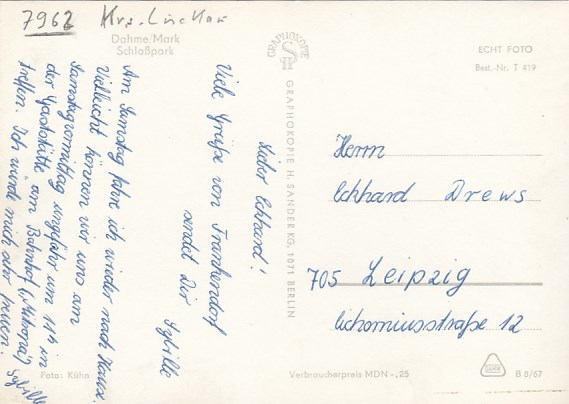 7962 Krs. Luckau
Dahme/Mark
Schloßpark
Lieber Eckhard!
Viele Grüße von Frankendorf
sendet Dir
Sybille
Am Samstag fahre ich wieder nach Hause.
Vielleicht können wir uns am
Samstagvormittag ungefähr um 11h in
der Gaststätte am Bahnhof („Mitropa“)
treffen. Ich würde mich sehr freuen.
Sybille
Foto: Kühn
GRAPHOKOPIE
GRAPHOKOPIE H. SANDER KG, 1071 BERLIN
ECHT FOTO
Best.-Nr. T 419
Herrn
Eckhard Drews
705 Leipzig
Eichorniusstraße 12
Verbraucherpreis MDN -,25
B 8/67